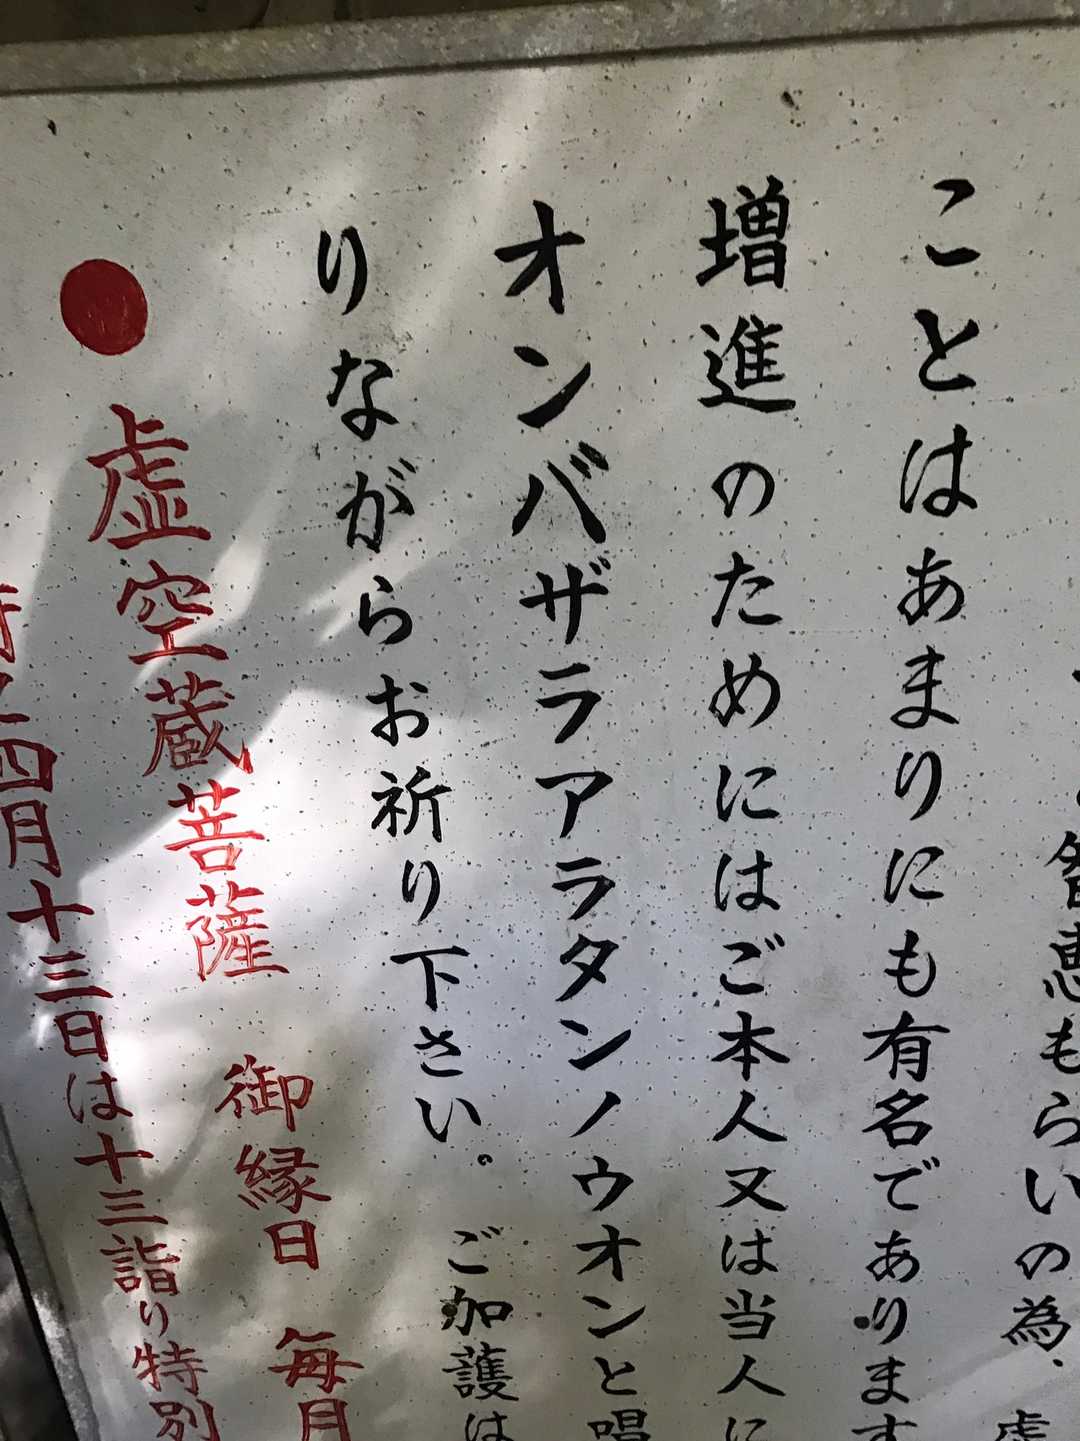 智恵もらいの為、虚
ことはあまりにも有名であります
増進のためにはご本人又は当人に
オンバザラアラタンノウオンと唱
りながらお祈り下さい。ご加護は
●虚空蔵菩薩 御縁日 毎月
四月十三日は十三詣り特別